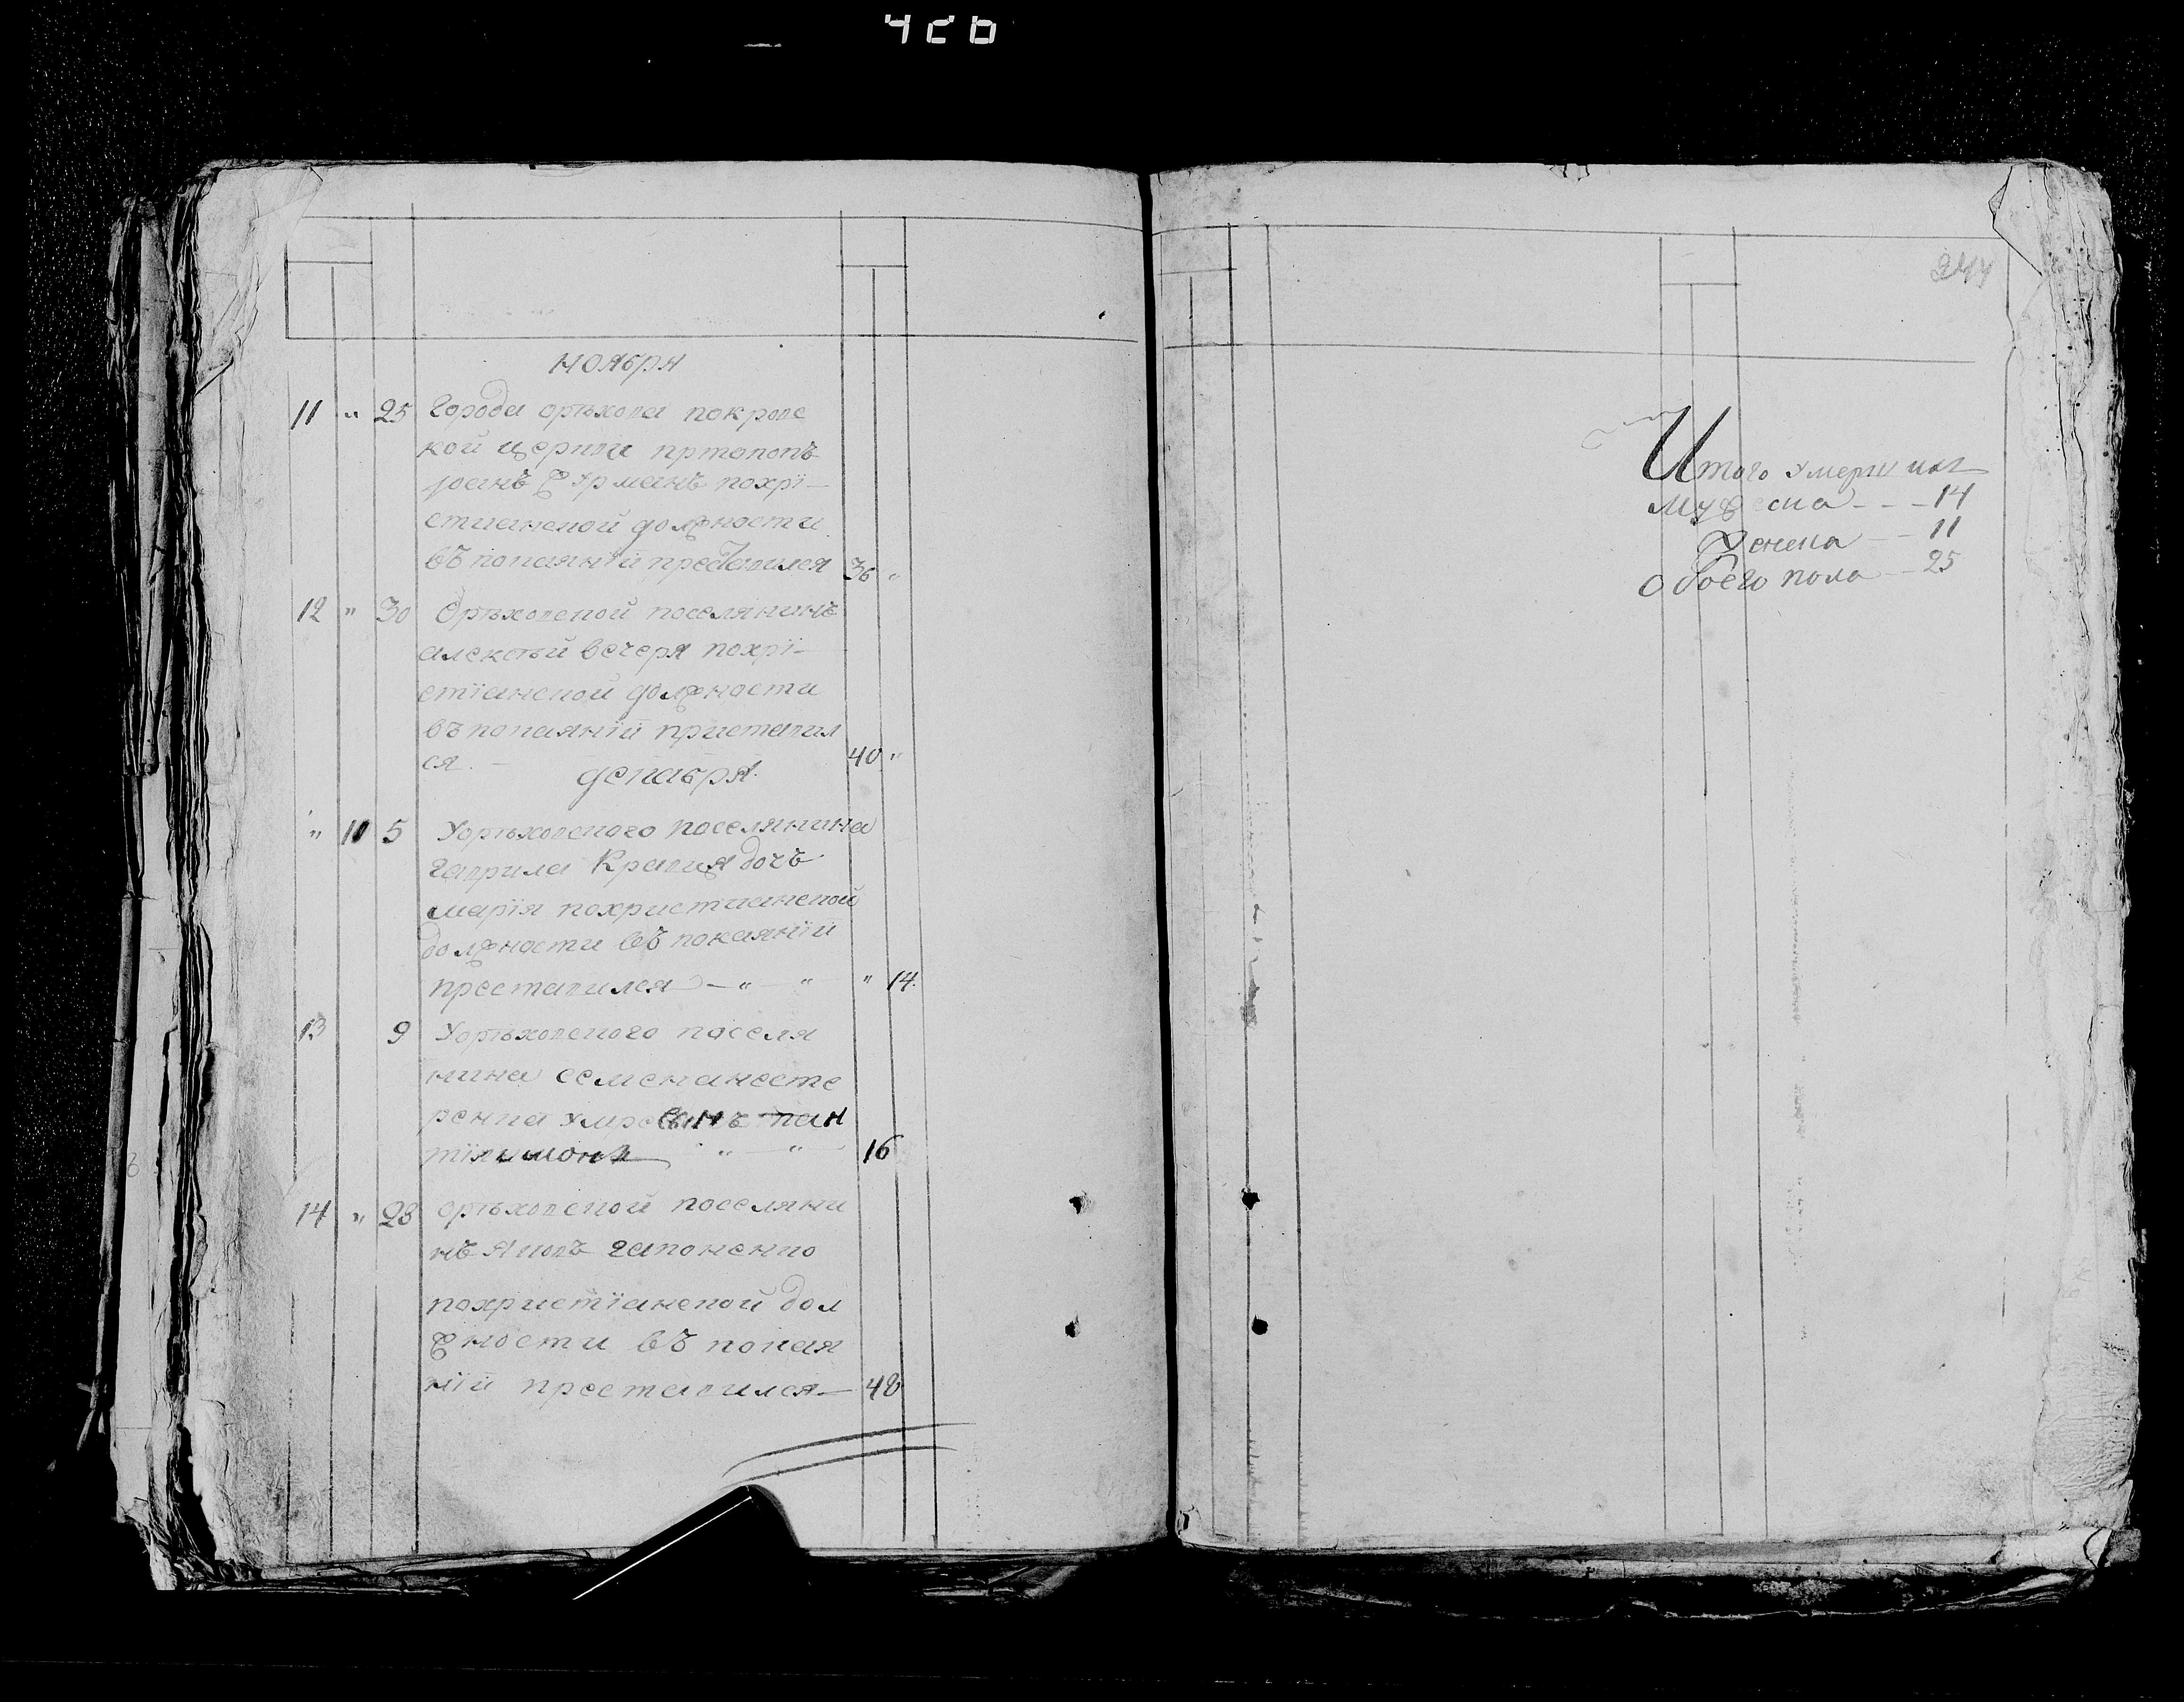 ноября
11 " 25 Города орѣхова покровс
кой церкви пртопопъ
іоанъ Журманъ похрі-
стианской должности
въ покаяніи преставился 36 "
12 " 30 Орѣховской поселянинъ
алексѣй вечеря похрі-
стіанской должности
въ покаяніи приставил
ся. - 40 "
декабря
" 10 5 Уорѣховского поселянина
гаврила Кравця дочъ
марія похристианской
должности въ покаяніи
преставился - " - " " 14.
13 9 Уорѣховского поселя
нина семена несте
ренка умре сынъ пан
тілимонъ " - " - 16
14 " 28 орѣховской поселяни
нъ яковъ гапоненко
похристіанской дол
жности въ покая
ніи преставился - 48
244
Итого умерших
Мужеска - - - 14
Женска - - 11
обоего пола - 25